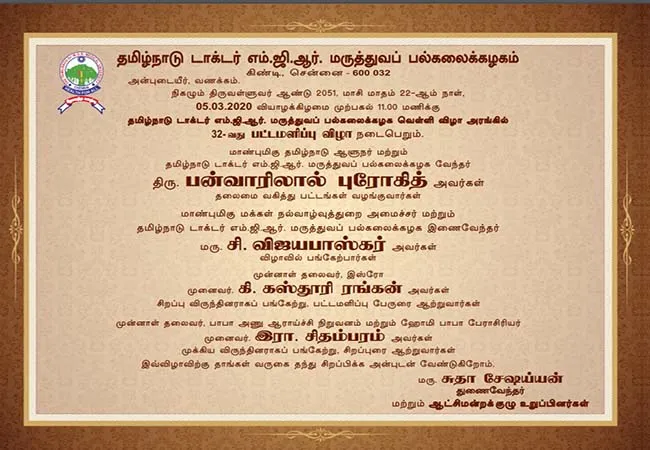 தமிழ்நாடு டாக்டர் எம்.ஜி.ஆர். மருத்துவப் பல்கலைக்கழகம்
கிண்டி, சென்னை - 600 032
அன்புடையீர், வணக்கம்.
நிகழும் திருவள்ளுவர் ஆண்டு 2051, மாசி மாதம் 22-ஆம் நாள்,
05.03.2020 வியாழக்கிழமை முற்பகல் 11.00 மணிக்கு
தமிழ்நாடு டாக்டர் எம்.ஜி.ஆர். மருத்துவப் பல்கலைக்கழக வெள்ளி விழா அரங்கில்
32-வது பட்டமளிப்பு விழா நடைபெறும்.
மாண்புமிகு தமிழ்நாடு ஆளுநர் மற்றும்
தமிழ்நாடு டாக்டர் எம்.ஜி.ஆர். மருத்துவப் பல்கலைக்கழக வேந்தர்
திரு. பன்வாரிலால் புரோகித் அவர்கள்
தலைமை வகித்து பட்டங்கள் வழங்குவார்கள்
மாண்புமிகு மக்கள் நல்வாழ்வுத்துறை அமைச்சர் மற்றும்
தமிழ்நாடு டாக்டர் எம்.ஜி.ஆர். மருத்துவப் பல்கலைக்கழக இணைவேந்தர்
மரு. சி. விஜயபாஸ்கர் அவர்கள்
விழாவில் பங்கேற்பார்கள்
முன்னாள் தலைவர், இஸ்ரோ
முனைவர். கி. கஸ்தூரி ரங்கன் அவர்கள்
சிறப்பு விருந்தினராகப் பங்கேற்று, பட்டமளிப்பு பேருரை ஆற்றுவார்கள்
முன்னாள் தலைவர், பாபா அணு ஆராய்ச்சி நிறுவனம் மற்றும் ஹோமி பாபா பேராசிரியர்
முனைவர். இரா. சிதம்பரம் அவர்கள்
முக்கிய விருந்தினராகப் பங்கேற்று, சிறப்புரை ஆற்றுவார்கள்
இவ்விழாவிற்கு தாங்கள் வருகை தந்து சிறப்பிக்க அன்புடன் வேண்டுகிறோம்.
மரு. சுதா சேஷய்யன்
துணைவேந்தர்
மற்றும் ஆட்சிமன்றக்குழு உறுப்பினர்கள்